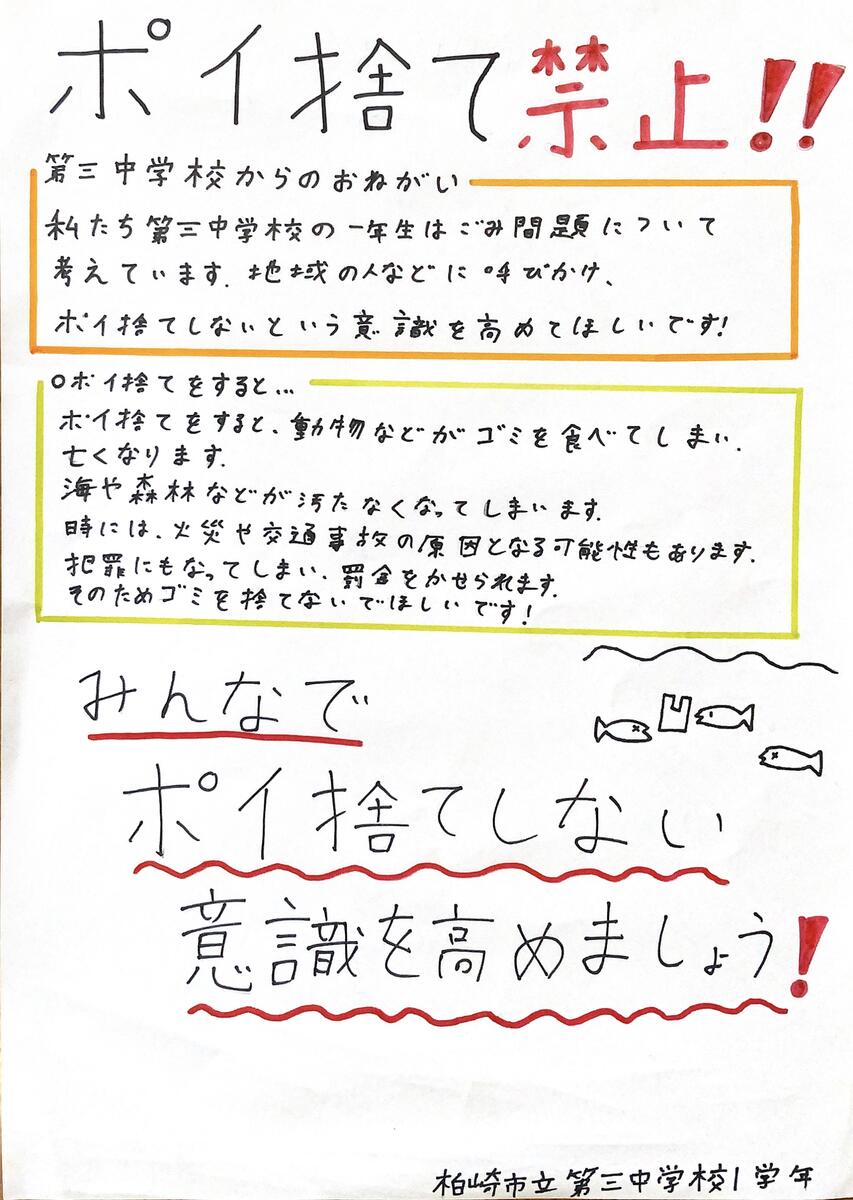 ポイ捨て禁止!!
第三中学校からのおねがい
私たち第三中学校の一年生はごみ問題について
考えています。地域の人などに呼びかけ、
ポイ捨てしないという意識を高めてほしいです!
○ポイ捨てをすると…
ポイ捨てをすると、動物などがゴミを食べてしまい、
亡くなります。
海や森林などが汚たなくなってしまいます。
時には、火災や交通事故の原因となる可能性もあります。
犯罪にもなってしまい、罰金をかせられます。
そのためゴミを捨てないでほしいです!
みんなで
ポイ捨てしない
意識を高めましょう!
柏崎市立第三中学校1学年